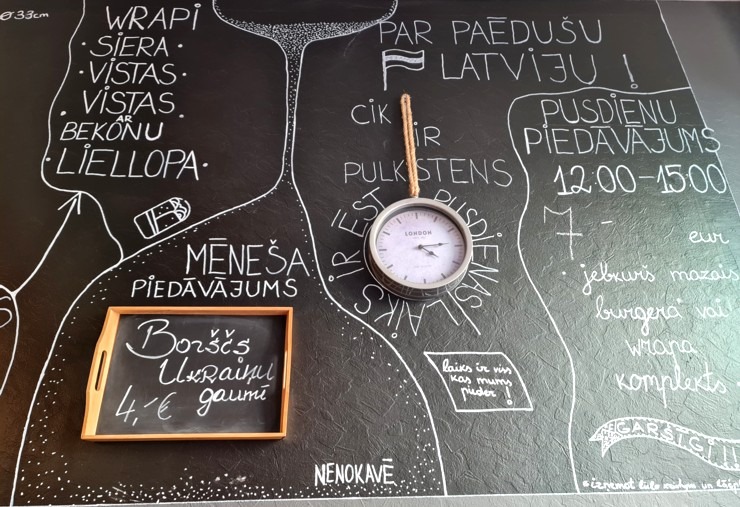 ø 33cm
WRAPI
· SIERA ·
· VISTAS ·
· VISTAS
AR
BEKONU
· LIELLOPA ·
MĒNEŠA
PIEDĀVĀJUMS
Borščs
Ukraiņu
gaumē
4,-€
NENOKAVĒ
PAR PAĒDUŠU
LATVIJU !
CIK
IR
PULKSTENS
LAIKS IR ĒST PUSDIENAS
LONDON
laiks ir viss
kas mums
pieder !
PUSDIENU
PIEDĀVĀJUMS
12:00-15:00
7 - eur
jebkurš mazais
burgera vai
wrapa
komplekts
GARŠĪGI !!